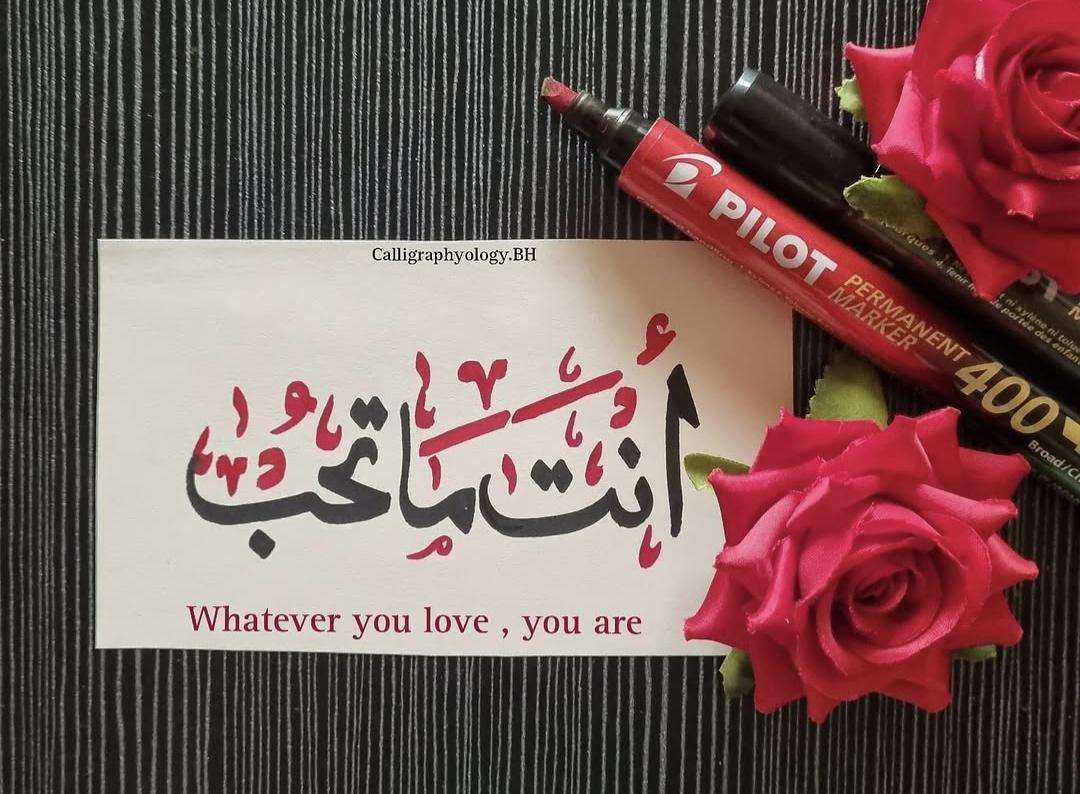 Calligraphyology.BH
أنت ما تحب
Whatever you love , you are
PILOT
PERMANENT
MARKER
400